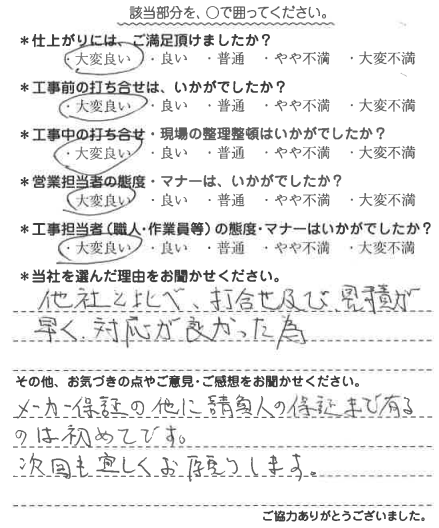 該当部分を、○で囲ってください。
＊仕上がりには、ご満足頂けましたか？
・大変良い ・良い ・普通 ・やや不満 ・大変不満
＊工事前の打ち合せは、いかがでしたか？
・大変良い ・良い ・普通 ・やや不満 ・大変不満
＊工事中の打ち合せ・現場の整理整頓はいかがでしたか？
・大変良い ・良い ・普通 ・やや不満 ・大変不満
＊営業担当者の態度・マナーは、いかがでしたか？
大変良い ・良い ・普通 ・やや不満 ・大変不満
＊工事担当者（職人・作業員等）の態度・マナーはいかがでしたか？
・大変良い ・良い ・普通 ・やや不満 ・大変不満
＊当社を選んだ理由をお聞かせください。
他社と比べ、打合せ及び、見積が
早く、対応が良かった為
その他、お気づきの点やご意見・ご感想をお聞かせください。
メーカー保証の他に請負人の保証まで有る
のは初めてです。
次回も宜しくお願いします。
ご協力ありがとうございました。